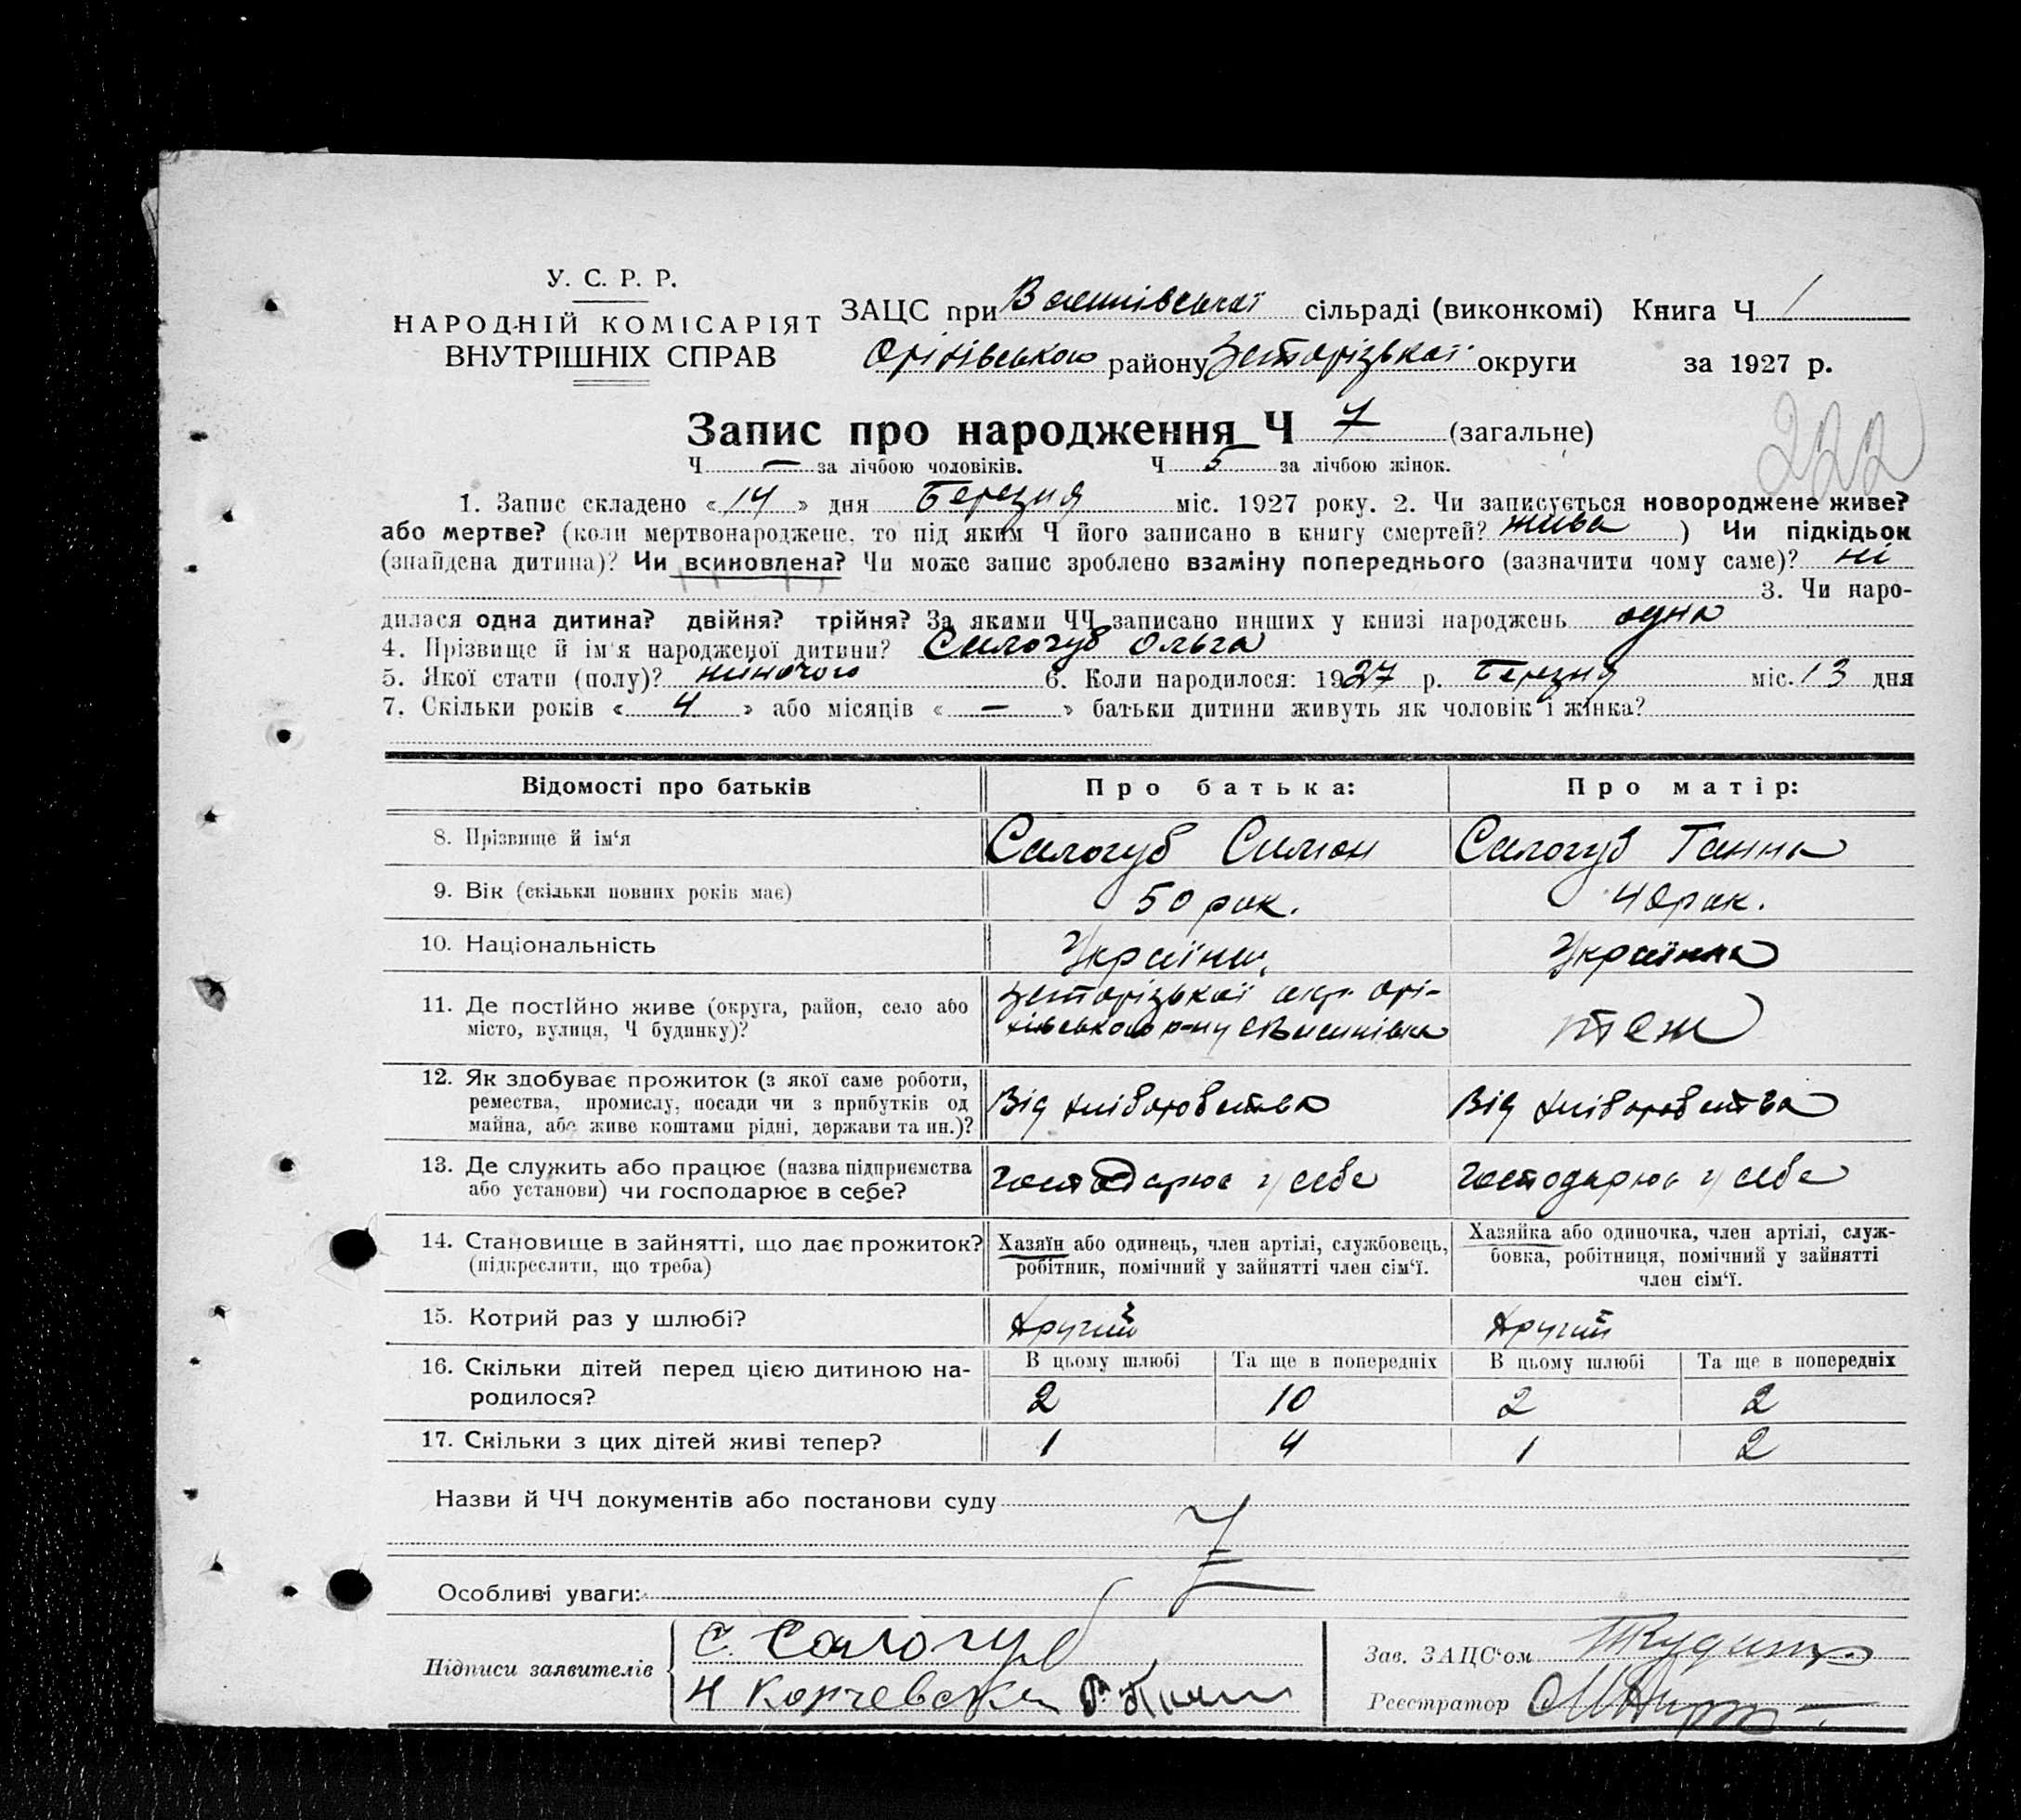 У. С. Р. Р.
НАРОДНІЙ КОМІСАРІЯТ
ВНУТРІШНІХ СПРАВ
ЗАЦС при сільраді (виконкомі) Книга Ч 1
Оріхівського району Запорізької округи за 1927 р.
222
Запис про народження Ч 7 (загальне)
Ч — за лічбою чоловіків. Ч 5 за лічбою жінок.
1. Запис складено « 14 » дня Березня міс. 1927 року. 2. Чи записується новороджене живе?
або мертве? (коли мертвонароджене, то під яким Ч його записано в книгу смертей? жива ) Чи підкідьок
(знайдена дитина)? Чи всиновлена? Чи може запис зроблено взаміну попереднього (зазначити чому саме)? ні
3. Чи наро-
дилася одна дитина? двійня? трійня? За якими ЧЧ записано инших у книзі народжень одна
4. Прізвище й ім'я народженої дитини? Салогуб Ольга
5. Якої стати (полу)? жіночого 6. Коли народилося: 1927 р. Березня міс. 13 дня
7. Скільки років « 4 » або місяців « — » батьки дитини живуть як чоловік і жінка?
Відомості про батьків Про батька: Про матір:
8. Прізвище й ім'я Салогуб Симон Салогуб Ганна
9. Вік (скільки повних років має) 50 рок. 40 рок.
10. Національність Українц. Українка
11. Де постійно живе (округа, район, село або Запорізької окр. Орі-
місто, вулиця, Ч будинку)? хівського р-ну с. теж
12. Як здобуває прожиток (з якої саме роботи,
ремества, промислу, посади чи з прибутків од Від хліборобства Від хліборобства
майна, або живе коштами рідні, держави та ин.)?
13. Де служить або працює (назва підприємства господарює у себе господарює у себе
або установи) чи господарює в себе?
14. Становище в зайнятті, що дає прожиток? Хазяїн або одинець, член артілі, службовець, Хазяйка або одиночка, член артілі, служ-
(підкреслити, що треба) робітник, помічний у зайнятті член сім'ї. бовка, робітниця, помічний у зайнятті
член сім'ї.
15. Котрий раз у шлюбі? другий другий
16. Скільки дітей перед цією дитиною на- В цьому шлюбі Та ще в попередніх В цьому шлюбі Та ще в попередніх
родилося? 2 10 2 2
17. Скільки з цих дітей живі тепер? 1 4 1 2
Назви й ЧЧ документів або постанови суду
Особливі уваги:
Підписи заявителів С. Салогуб
Зав. ЗАЦС'ом
Реєстратор